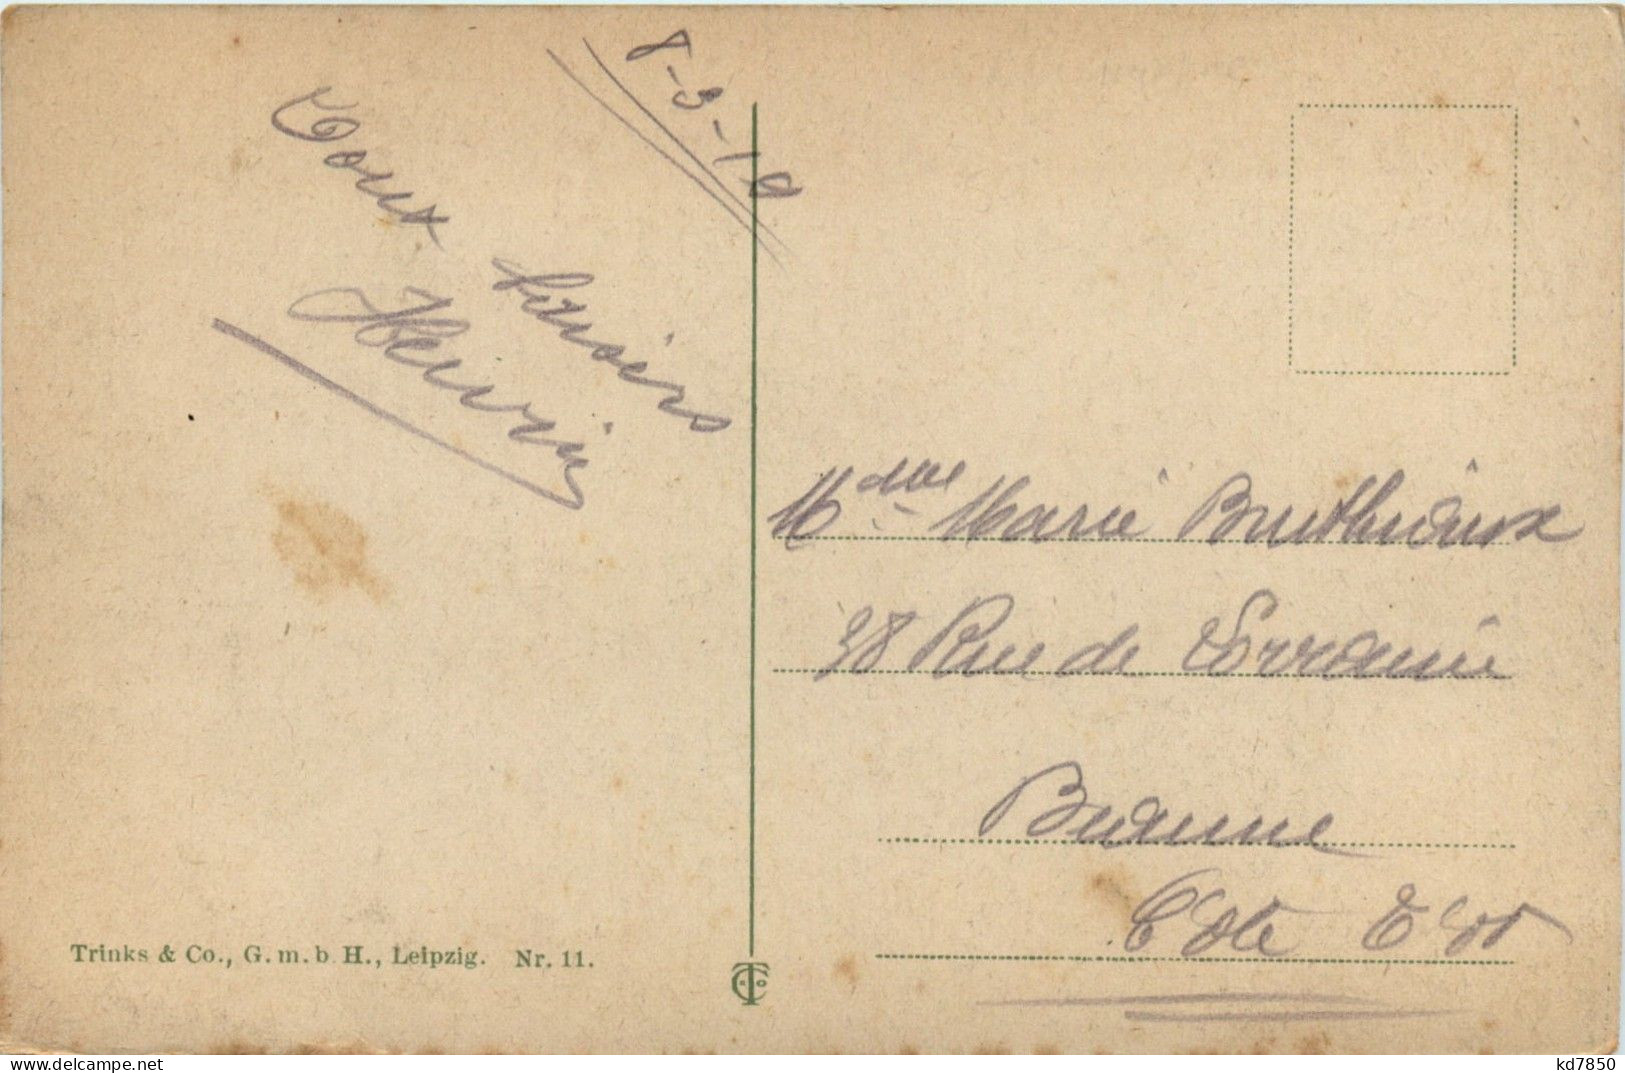 8-3-19
Doux
baisers
Henri
Mdme Marie Bruthiaux
38 Rue de Lorraine
Beaune
Côte d'Or
Trinks & Co., G. m. b H., Leipzig. Nr. 11.
TCo
delcampe.net
kd7850